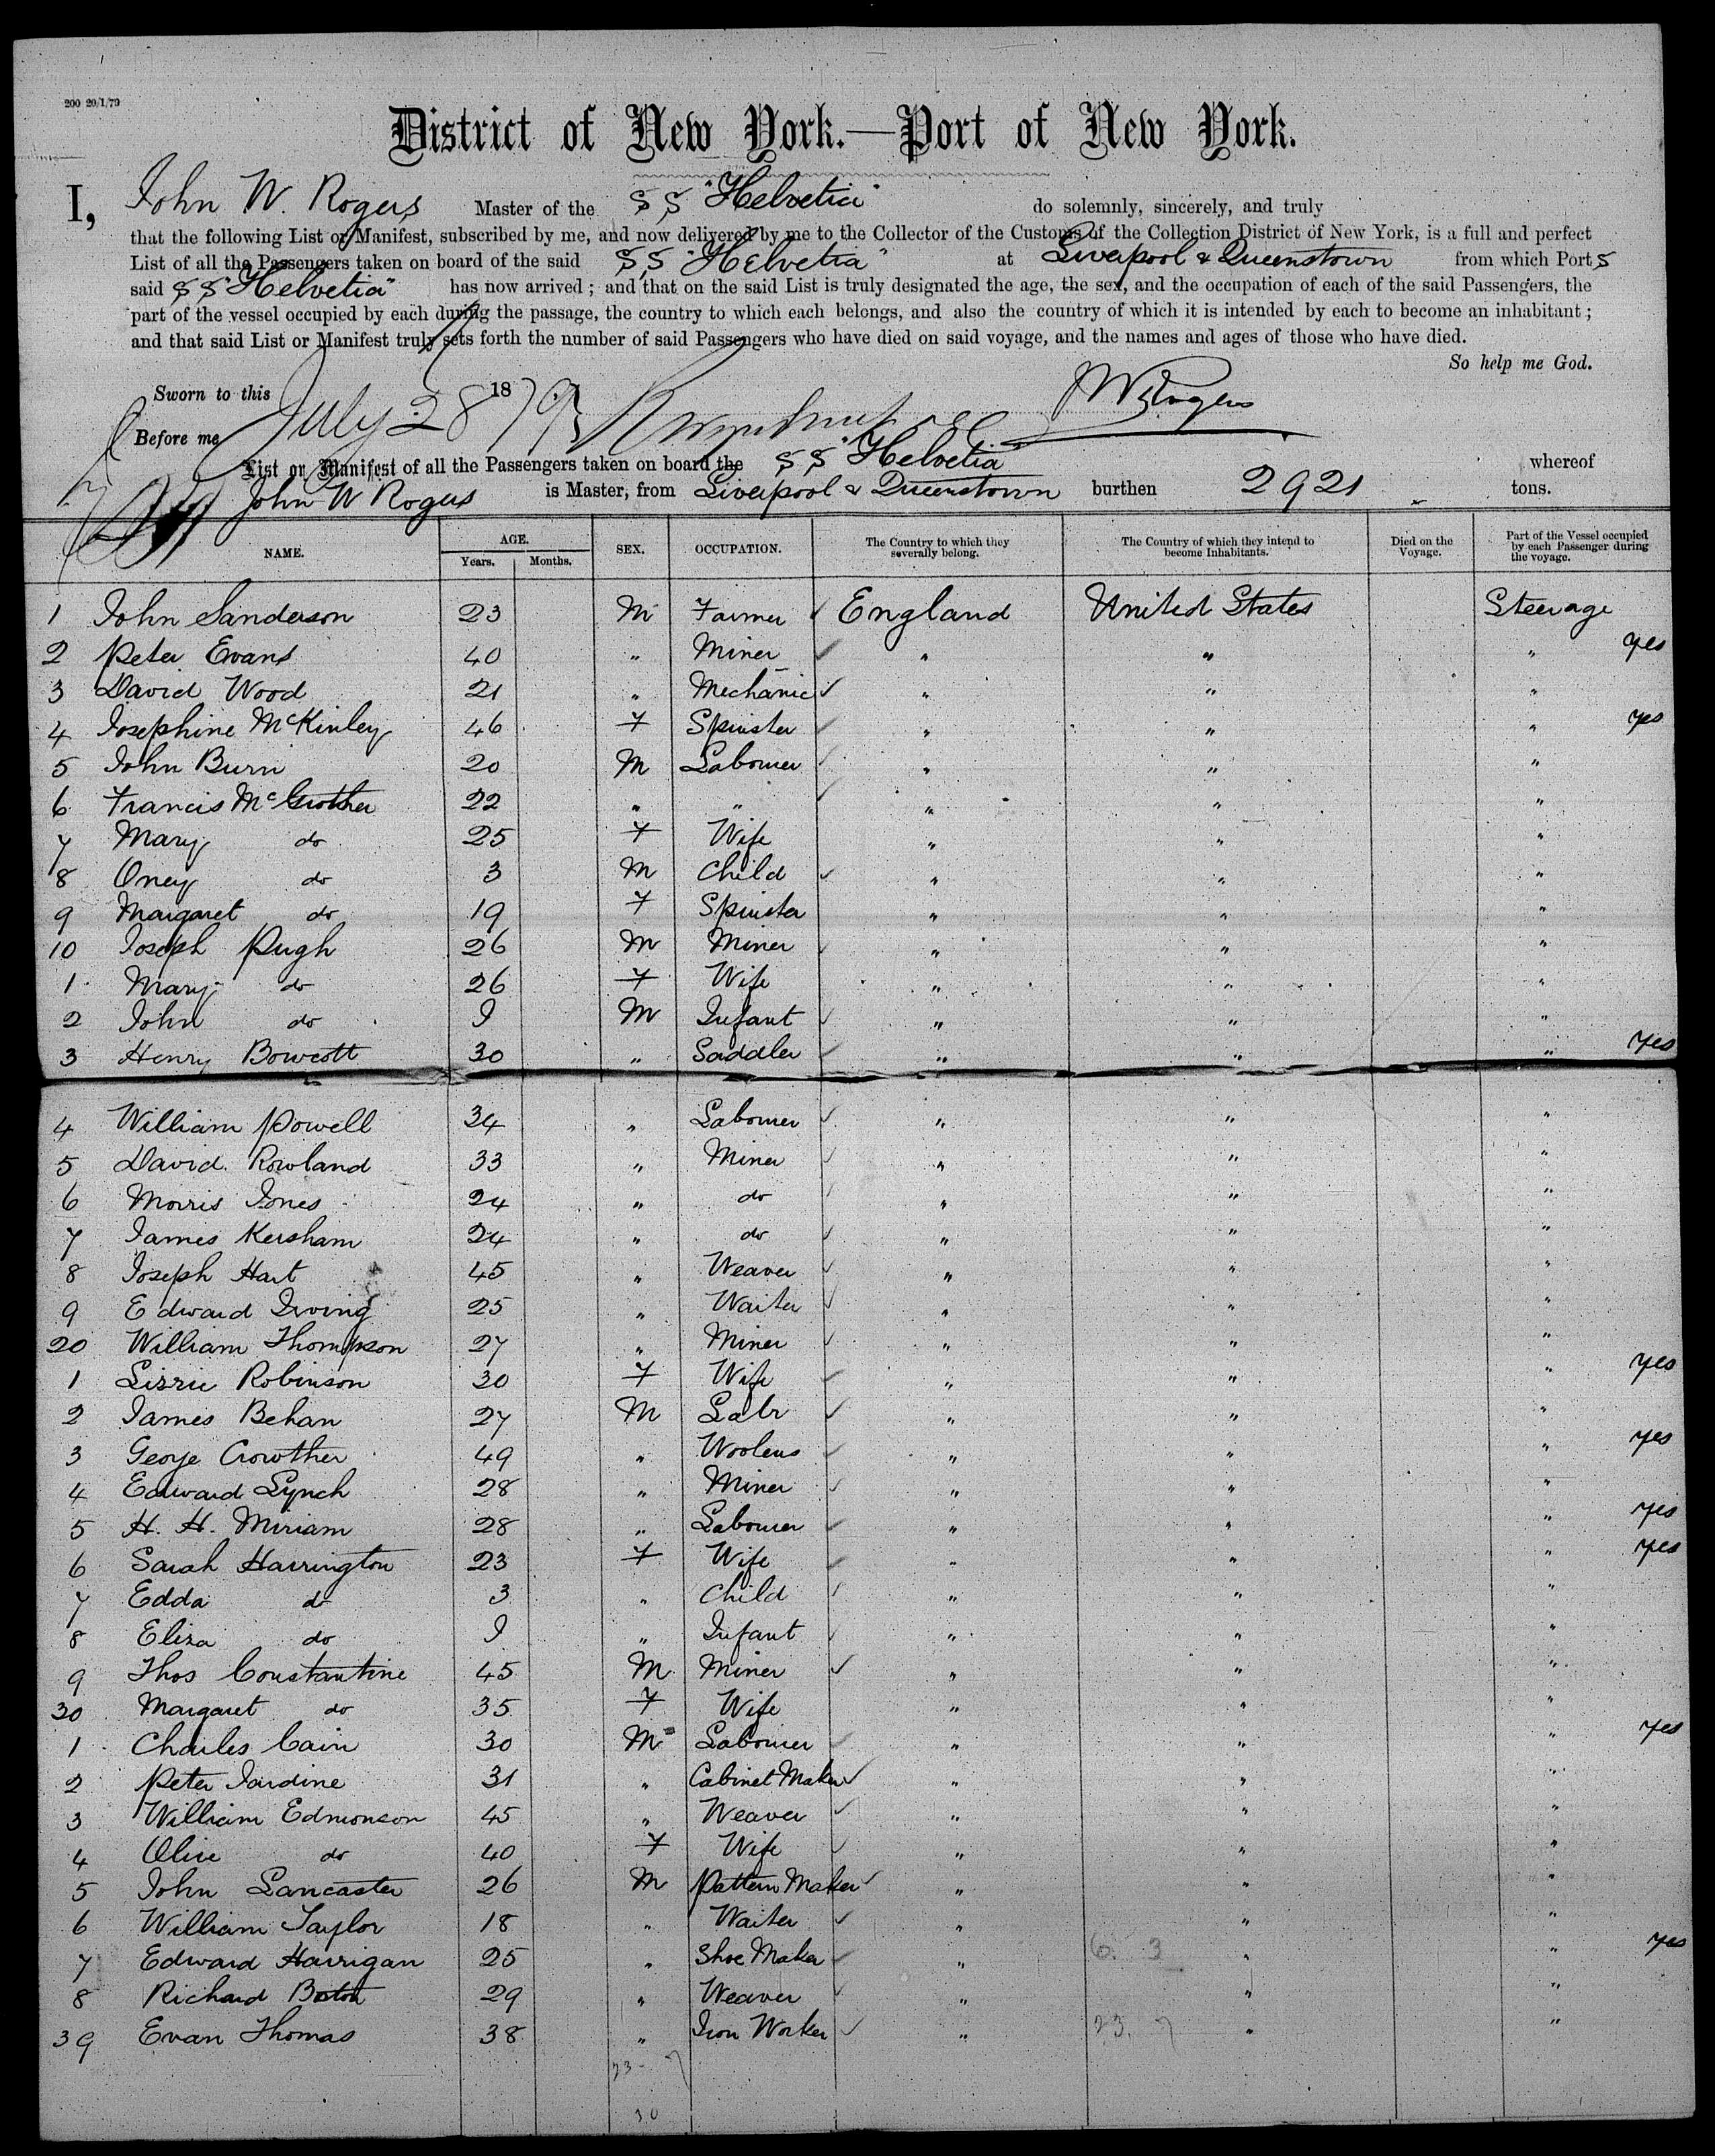 200 20/1/79
District of New York.—Port of New York.
I, John W. Rogers Master of the SS "Helvetia" do solemnly, sincerely, and truly
that the following List or Manifest, subscribed by me, and now delivered by me to the Collector of the Customs of the Collection District of New York, is a full and perfect
List of all the Passengers taken on board of the said SS "Helvetia" at Liverpool & Queenstown from which Ports
said SS "Helvetia" has now arrived; and that on the said List is truly designated the age, the sex, and the occupation of each of the said Passengers, the
part of the vessel occupied by each during the passage, the country to which each belongs, and also the country of which it is intended by each to become an inhabitant;
and that said List or Manifest truly sets forth the number of said Passengers who have died on said voyage, and the names and ages of those who have died.
So help me God.
Sworn to this July 28 1879 JW Rogers
Before me
List or Manifest of all the Passengers taken on board the SS "Helvetia" whereof
John W Rogers is Master, from Liverpool & Queenstown burthen 2921 tons.
NAME. AGE. Years. Months. SEX. OCCUPATION. The Country to which they severally belong. The Country of which they intend to become Inhabitants. Died on the Voyage. Part of the Vessel occupied by each Passenger during the voyage.
1 John Sanderson 23 M Farmer ✓ England United States Steerage
2 Peter Evans 40 " Miner ✓ " " " yes
3 David Wood 21 " Mechanic ✓ " " "
4 Josephine McKinley 46 F Spinster ✓ " " " yes
5 John Burn 20 M Labourer ✓ " " "
6 Francis McGrother 22 " " ✓ " " "
7 Mary do 25 F Wife " " "
8 Oney do 3 M Child ✓ " " "
9 Margaret do 19 F Spinster " " "
10 Joseph Pugh 26 M Miner ✓ " " "
1 Mary do 26 F Wife " " "
2 John do I M Infant ✓ " " "
3 Henry Bowcott 30 " Saddler ✓ " " " yes
4 William Powell 34 " Labourer ✓ " " "
5 David Rowland 33 " Miner ✓ " " "
6 Morris Jones 24 " do ✓ " " "
7 James Kersham 24 " do ✓ " " "
8 Joseph Hart 45 " Weaver ✓ " " "
9 Edward Irving 25 " Waiter ✓ " " "
20 William Thompson 27 " Miner ✓ " " "
1 Lizzie Robinson 30 F Wife ✓ " " " yes
2 James Behan 27 M Labr ✓ " " "
3 George Crowther 49 " Woolens ✓ " " " yes
4 Edward Lynch 28 " Miner ✓ " " "
5 H. H. Miriam 28 " Labourer ✓ " " " yes
6 Sarah Harrington 23 F Wife ✓ " " " yes
7 Edda do 3 " Child ✓ " " "
8 Eliza do I " Infant ✓ " " "
9 Thos Constantine 45 M Miner ✓ " " "
30 Margaret do 35 F Wife " " "
1 Charles Cain 30 M Labourer ✓ " " " yes
2 Peter Jardine 31 " Cabinet Maker ✓ " " "
3 William Edmonson 45 " Weaver ✓ " " "
4 Olive do 40 F Wife ✓ " " "
5 John Lancaster 26 M Pattern Maker ✓ " " "
6 William Taylor 18 " Waiter ✓ " " "
7 Edward Harrigan 25 " Shoe Maker ✓ " 6. 3 " " yes
8 Richard Boston 29 " Weaver ✓ " " "
39 Evan Thomas 38 " Iron Worker ✓ " 23. 7 " "
23 - 7
30